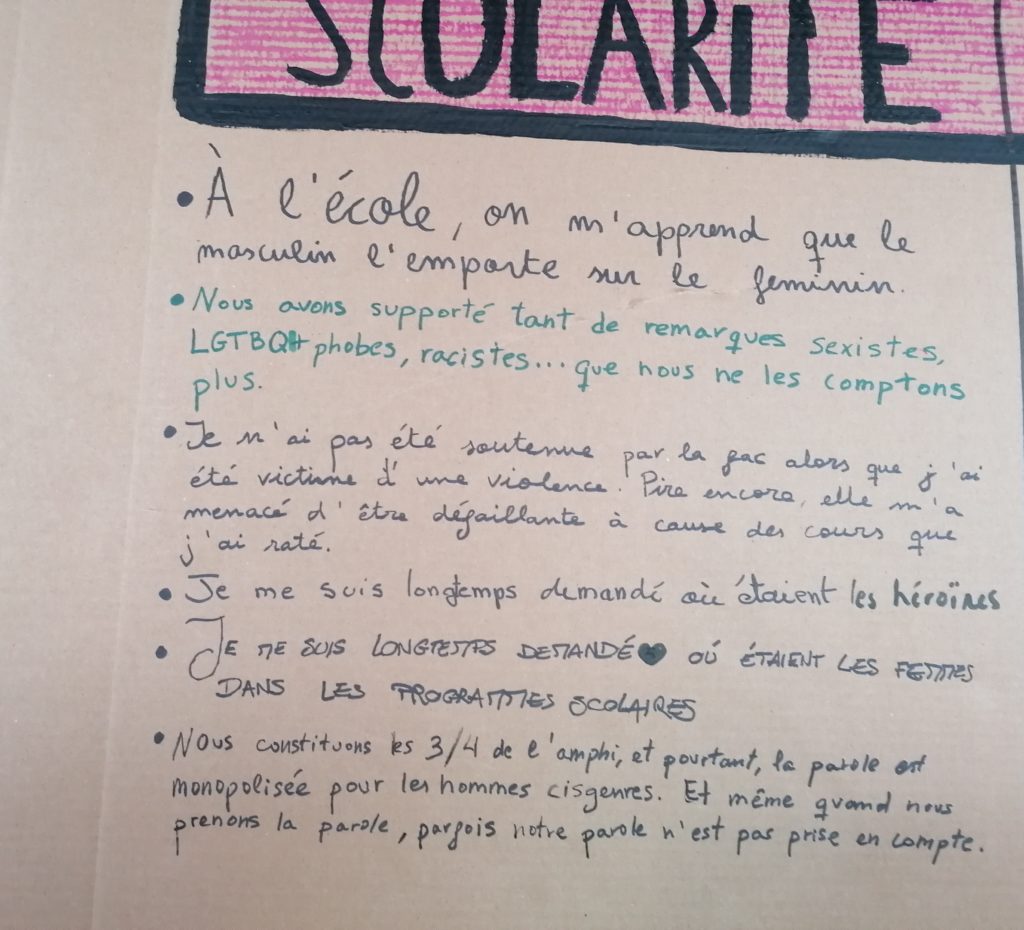 SCOLARITÉ
• À l'école, on m'apprend que le
masculin l'emporte sur le feminin.
• Nous avons supporté tant de remarques sexistes,
LGTBQ+phobes, racistes... que nous ne les comptons
plus.
• Je n'ai pas été soutenue par la fac alors que j'ai
été victime d'une violence. Pire encore, elle m'a
menacé d'être défaillante à cause des cours que
j'ai raté.
• Je me suis longtemps demandé où étaient les héroïnes
• JE ME SUIS LONGTEMPS DEMANDÉ OÚ ÉTAIENT LES FEMMES
DANS LES PROGRAMMES SCOLAIRES
• Nous constituons les 3/4 de l'amphi, et pourtant, la parole est
monopolisée pour les hommes cisgenres. Et même quand nous
prenons la parole, parfois notre parole n'est pas prise en compte.